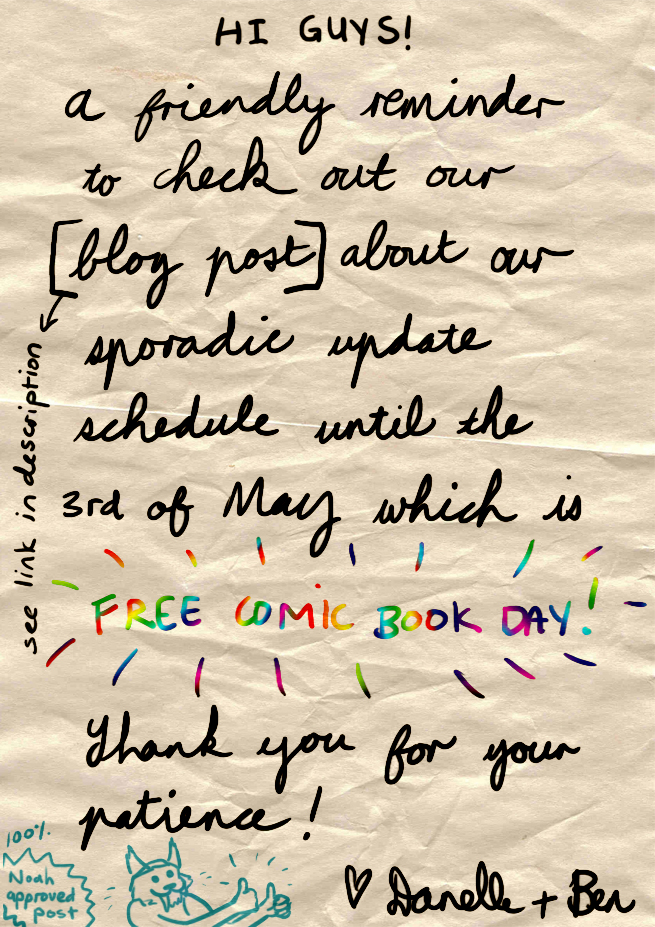 HI GUYS!
a friendly reminder
to check out our
[blog post] about our
sporadic update
schedule until the
3rd of May which is
FREE COMIC BOOK DAY!
Thank you for your
patience!
♡ Danelle + Ben
see link in description
100%
Noah
approved
post